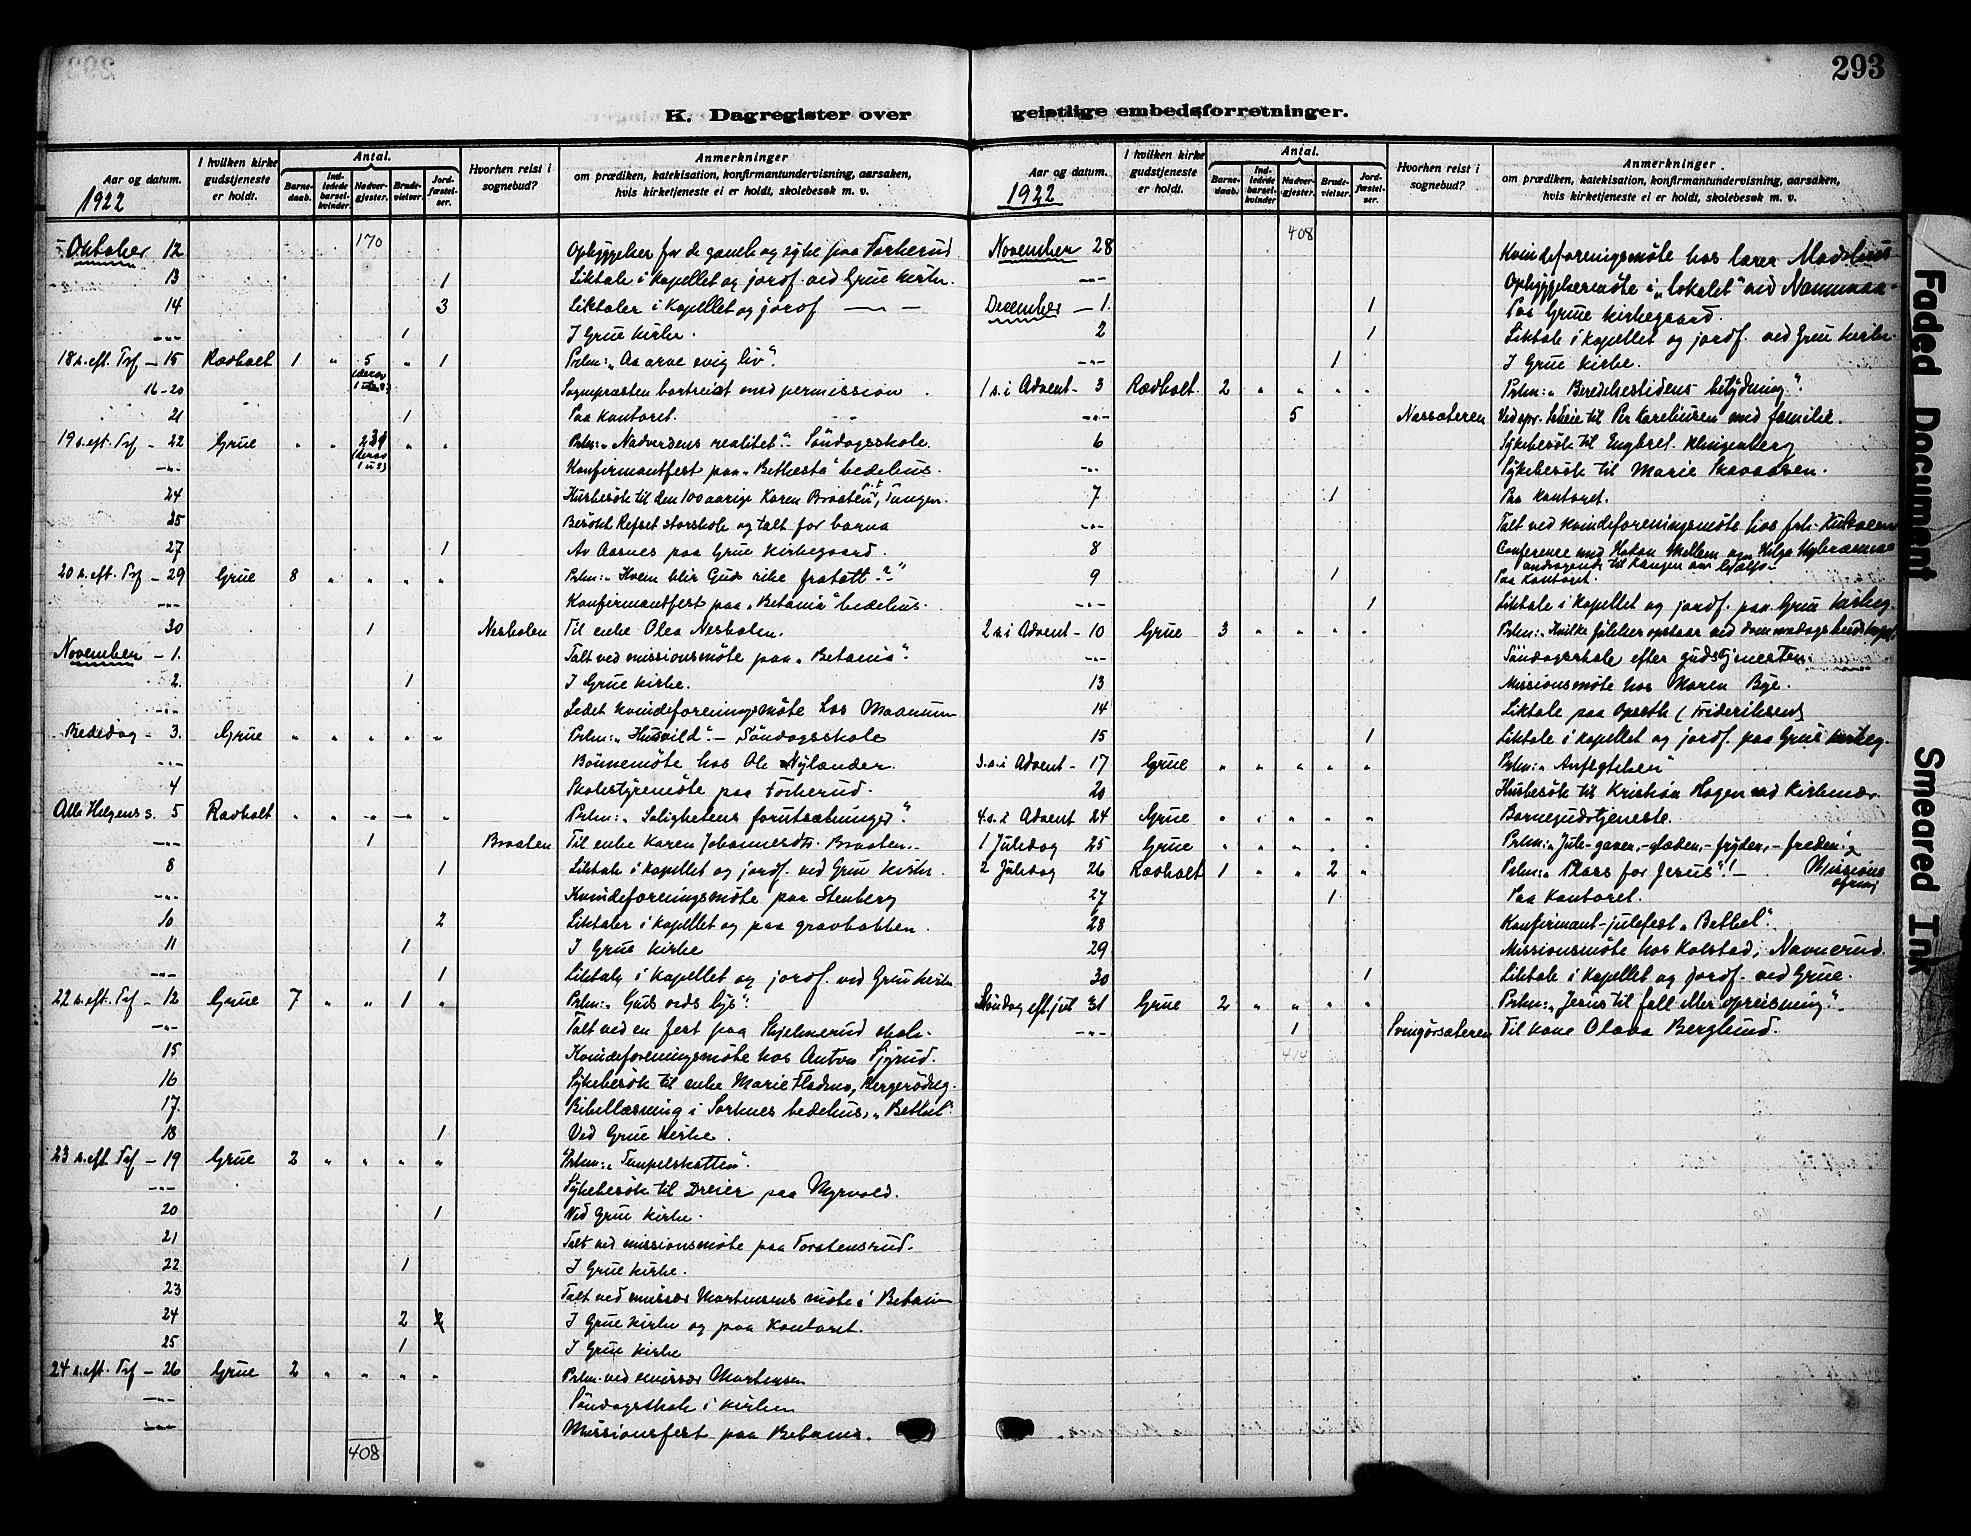 293
K. Dagregister over
geistlige embedsforretninger.
Aar og datum.
1922
I hvilken kirke gudstjeneste er holdt.
Antal.
Barnedaab.
Indledede barselkvinder
Nadvergjester.
Brudevielser.
Jordfæstelser.
Hvorhen reist i sognebud?
Anmerkninger
om prædiken, katekisation, konfirmantundervisning, aarsaken, hvis kirketjeneste ei er holdt, skolebesøk m. v.
170
Oktober 12 Opbyggelse for de gamle og syke paa Torkerud
13 1 Liktale i kapellet og jordf. ved Grue kirke.
14 3 Liktaler i kapellet og jordf — —
-"- 1 I Grue kirke.
18 s. eft. Trf — 15 Rødholt 1 " 5 " 1 Prken: „Aa arve evig liv".
(derav
16-20 Sognepresten bortreist med permission
21 1 Paa kontoret.
19 s. eft. Trf — 22 Grue " " 239 " " Prken: „Nadverdens realitet". Søndagsskole.
(derav
-"- Konfirmantfest paa „Bethesta" bedehus.
24 Husbesøk til den 100 aarige Karen Braaten, Tangen.
25 Besøkt Refset storskole og talt for barna
27 1 Av Aasnes paa Grue kirkegaard.
20 s. eft. Trf — 29 Grue 8 " " " " Prken: „Hvem blir Guds rike fratatt?"
-"- Konfirmantfest paa „Betania" bedehus.
30 1 Nesholen Til enke Olea Nesholen.
November — 1. Talt ved missionsmøte paa „Betania".
2. 1 I Grue kirke.
-"- Ledet kvindeforeningsmøte hos Moanum
Bededag — 3. Grue " " " " " Prken: „Husvild". — Søndagsskole
-"- Bønnemøte hos Ole Nylænder.
4 Skolestyremøte paa Torkerud.
Alle Helgens s. 5 Rødholt " " " " " Prken: „Salighetens forutsætninger".
-"- 1 Braaten Til enke Karen Johannesdtr. Braaten.
8 1 Liktale i kapellet og jordf. ved Grue kirke.
-"- Kvindeforeningsmøte paa Stenberg
10 2 Liktaler i kapellet og paa gravbakken.
11 1 I Grue kirke
-"- 1 Liktale i kapellet og jordf. ved Grue kirke
22 s. eft. Trf — 12 Grue 7 " " 1 " Prken: „Guds ords lys".
-"- Talt ved en fest paa Skjelmerud skole.
15 Kvindeforeningsmøte hos Anton
16 Sykebesøk til enke Marie Fladmo,
17. Bibellæsning i Sorknes bedehus, „Bethel"
18 1 Ved Grue kirke.
23 s. eft. Trf — 19 Grue 2 " " " " Prken: „Tempelskatten".
-"- Sykebesøk til Dreier paa Myrvold.
20 1 Ved Grue kirke.
21 Talt ved missionsmøte paa Torstensrud.
22 1 I Grue kirke.
23 Talt ved emissær Mortensens møte i Betania
24 2 I Grue kirke og paa kontoret.
25 1 I Grue kirke
24 s. eft. Trf — 26 Grue 2 " " " " Prken ved emissær Mortensen
-"- Søndagsskole i kirken
-"- Missionsfest paa Betania.
408
Aar og datum.
1922
I hvilken kirke gudstjeneste er holdt.
Antal.
Barnedaab.
Indledede barselkvinder
Nadvergjester.
Brudevielser.
Jordfæstelser.
Hvorhen reist i sognebud?
Anmerkninger
om prædiken, katekisation, konfirmantundervisning, aarsaken, hvis kirketjeneste ei er holdt, skolebesøk m. v.
408
November 28 Kvindeforeningsmøte hos lærer
-"- Opbyggelsesmøte i „lokalet" ved Nammoen
December — 1. 1 Paa Grue kirkegaard.
2 1 Liktale i kapellet og jordf. ved Grue kirke.
-"- 1 I Grue kirke.
1 s. i Advent — 3 Rødholt 2 " " " " Prken: „Beredelsestidens betydning".
-"- 5 Næssæteren til Per Kareliusen med familie.
6 Sykebesøk til Engbret Klingenberg
-"- Sykebesøk til Marie Skavaasen.
7 1 Paa kontoret.
-"- Talt ved kvindeforeningsmøte hos frk.
8 Conference med Hakon Mellem og Helga
andragende til Kongen om
9 1 Paa kontoret.
-"- 1 Liktale i kapellet og jordf. paa Grue kirkeg.
2 s. i Advent — 10 Grue 3 " " " " Prken: „Hvilke følelser opstaar ved dommedagsbudskapet
-"- Søndagsskole efter gudstjenesten.
13 Missionsmøte hos Maren Bye.
14 Liktale paa Opseth (Frideriksen)
15 1 Liktale i kapellet og jordf. paa Grue kirkeg.
3. s. i Advent — 17 Grue " " " " " Prken: „Anfegtelsen"
20 Husbesøk til Kristian Hagen ved Kirkenær.
4. s. i Advent 24 Grue " " " " " Barnegudstjeneste.
1 Juledag 25 Grue " " " " " Prken: „Jule-gaven, -glæden, -fryden, -freden".
2 Juledag 26 Rødholt 1 " " 2 " Prken: „Plass for Jesus"! — Missions
ofring
27 1 Paa kontoret.
28 Konfirmant-julefest „Bethel".
29 Missionsmøte hos Kolstad, Navnerud.
30 1 Liktale i kapellet og jordf. ved Grue.
Søndag eft. jul 31 Grue 2 " " " " Prken: „Jesus til fall eller opreisning".
-"- 1 Svingørsæteren Til kone Olava Berglund.
414
Faded Document
Smeared Ink